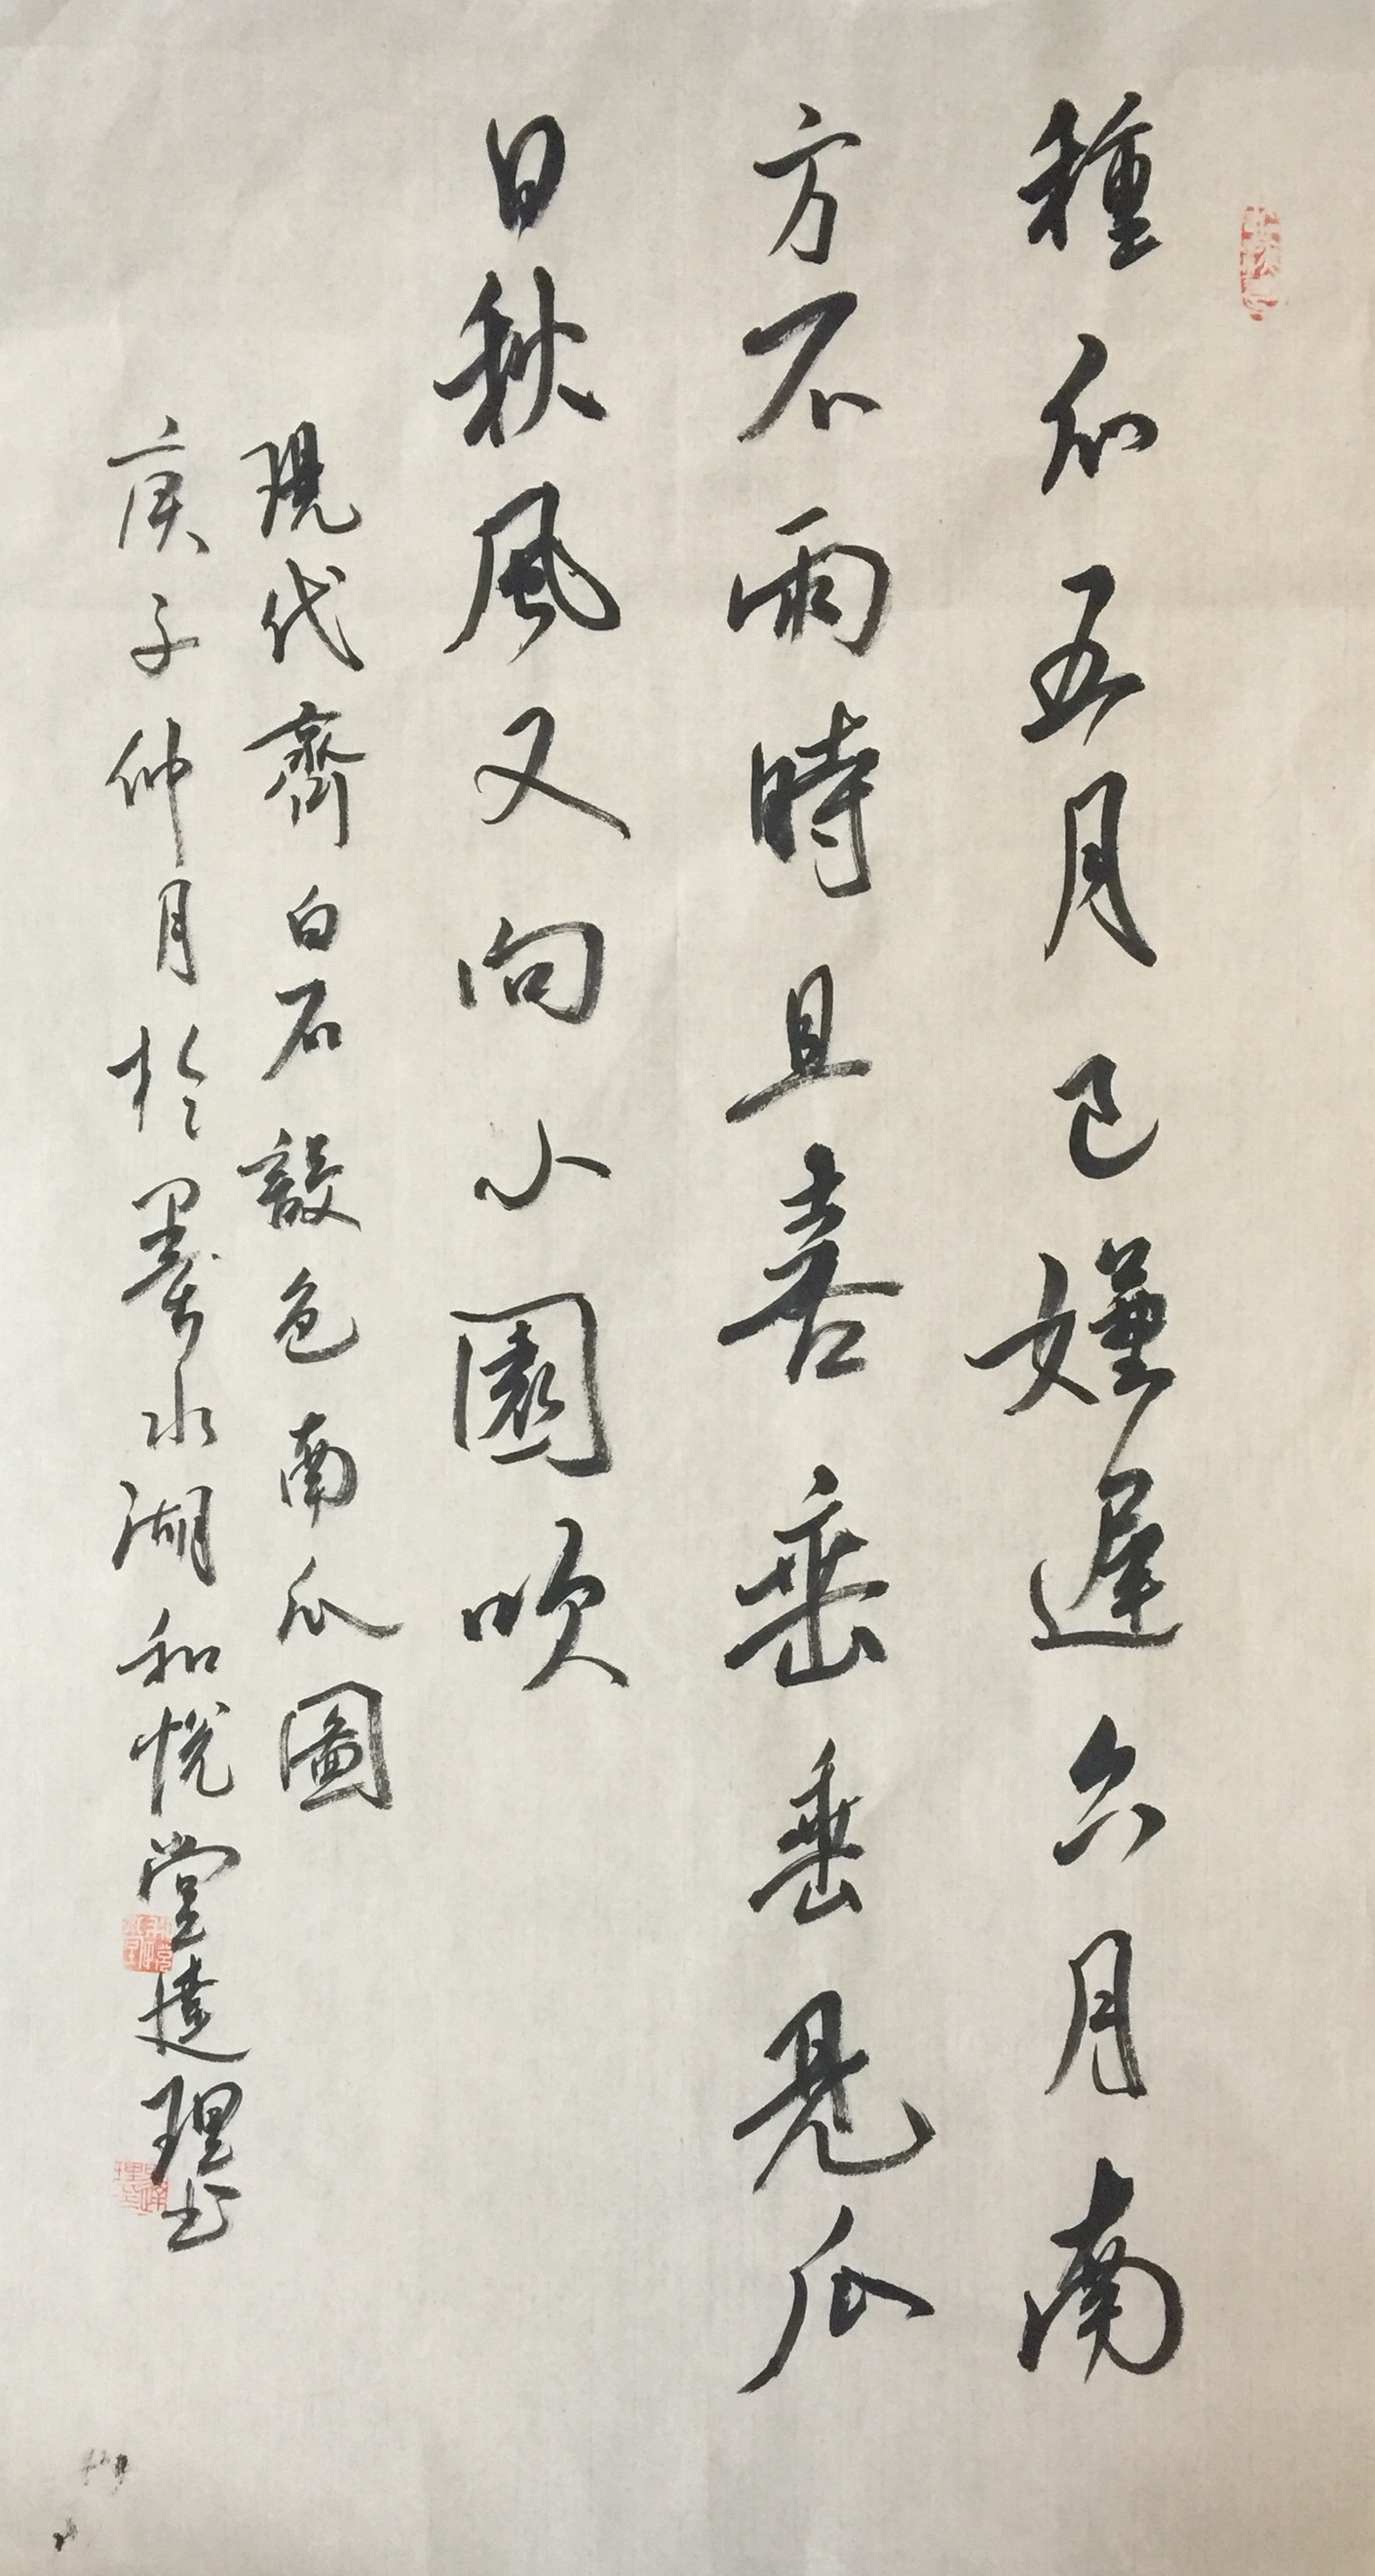 種瓜五月已嫌遲六月南
方不雨時且喜垂垂見瓜
日秋風又向小園吹
現代齊白石設色南瓜圖
庚子仲月於墨水湖和悅堂達理书